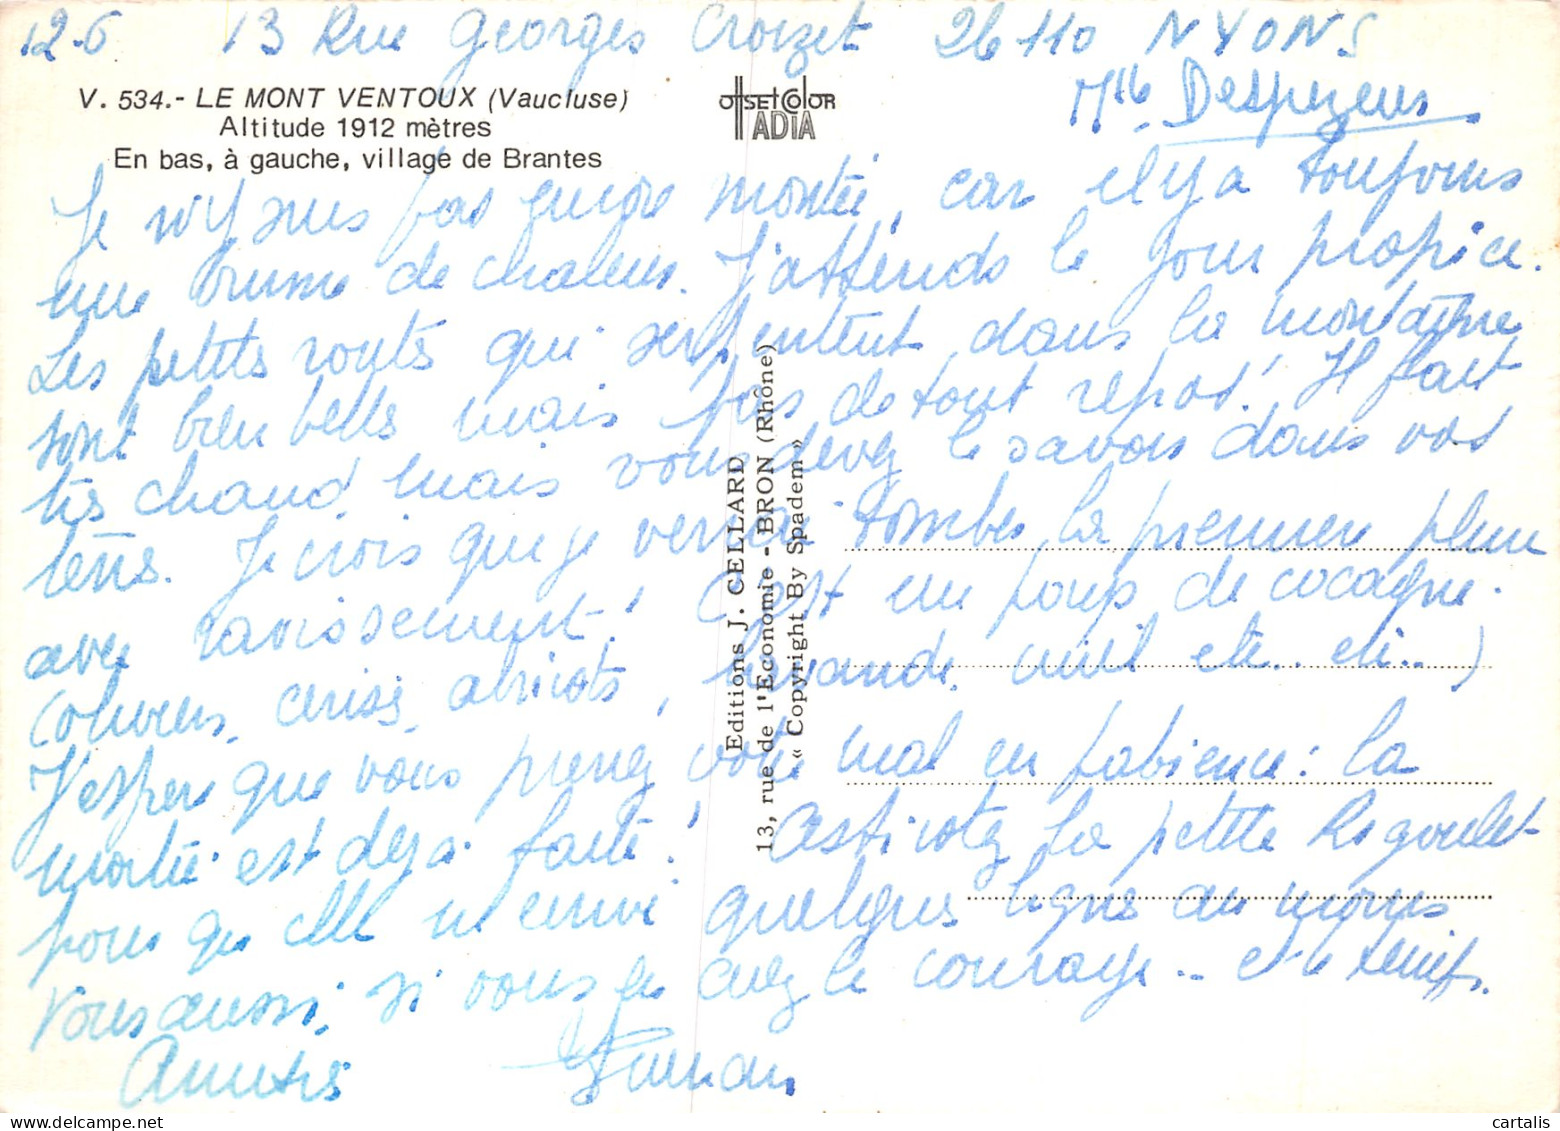 12-6 13 Rue Georges Croizet 26110 NYONS
Mlle Despezeus
V. 534.- LE MONT VENTOUX (Vaucluse)
Altitude 1912 mètres
En bas, à gauche, village de Brantes
OFFSET COLOR
IADIA
Je n'y suis pas encore montée, car il y a toujours
une brume de chaleur. J'attends le jour propice.
Les petites routes qui serpentent dans la montagne
sont bien belles mais pas de tout repos! Il fait
très chaud, mais vous devez le savoir dans vos
terres. Je crois que je verrai tomber la première pluie
avec ravissement! C'est un pays de cocagne.
(oliviers, cerises, abricots, lavande, miel etc.. etc..)
J'espère que vous prenez votre mal en patience: la
moitié est déjà faite! Asticotez la petite Rigoulet
pour qu'elle m'envoie quelques lignes au moins
Vous aussi, si vous en avez le courage.. et le temps.
Amitiés
Editions J. CELLARD
13, rue de l'Economie - BRON (Rhône)
« Copyright By Spadem »
cartalis